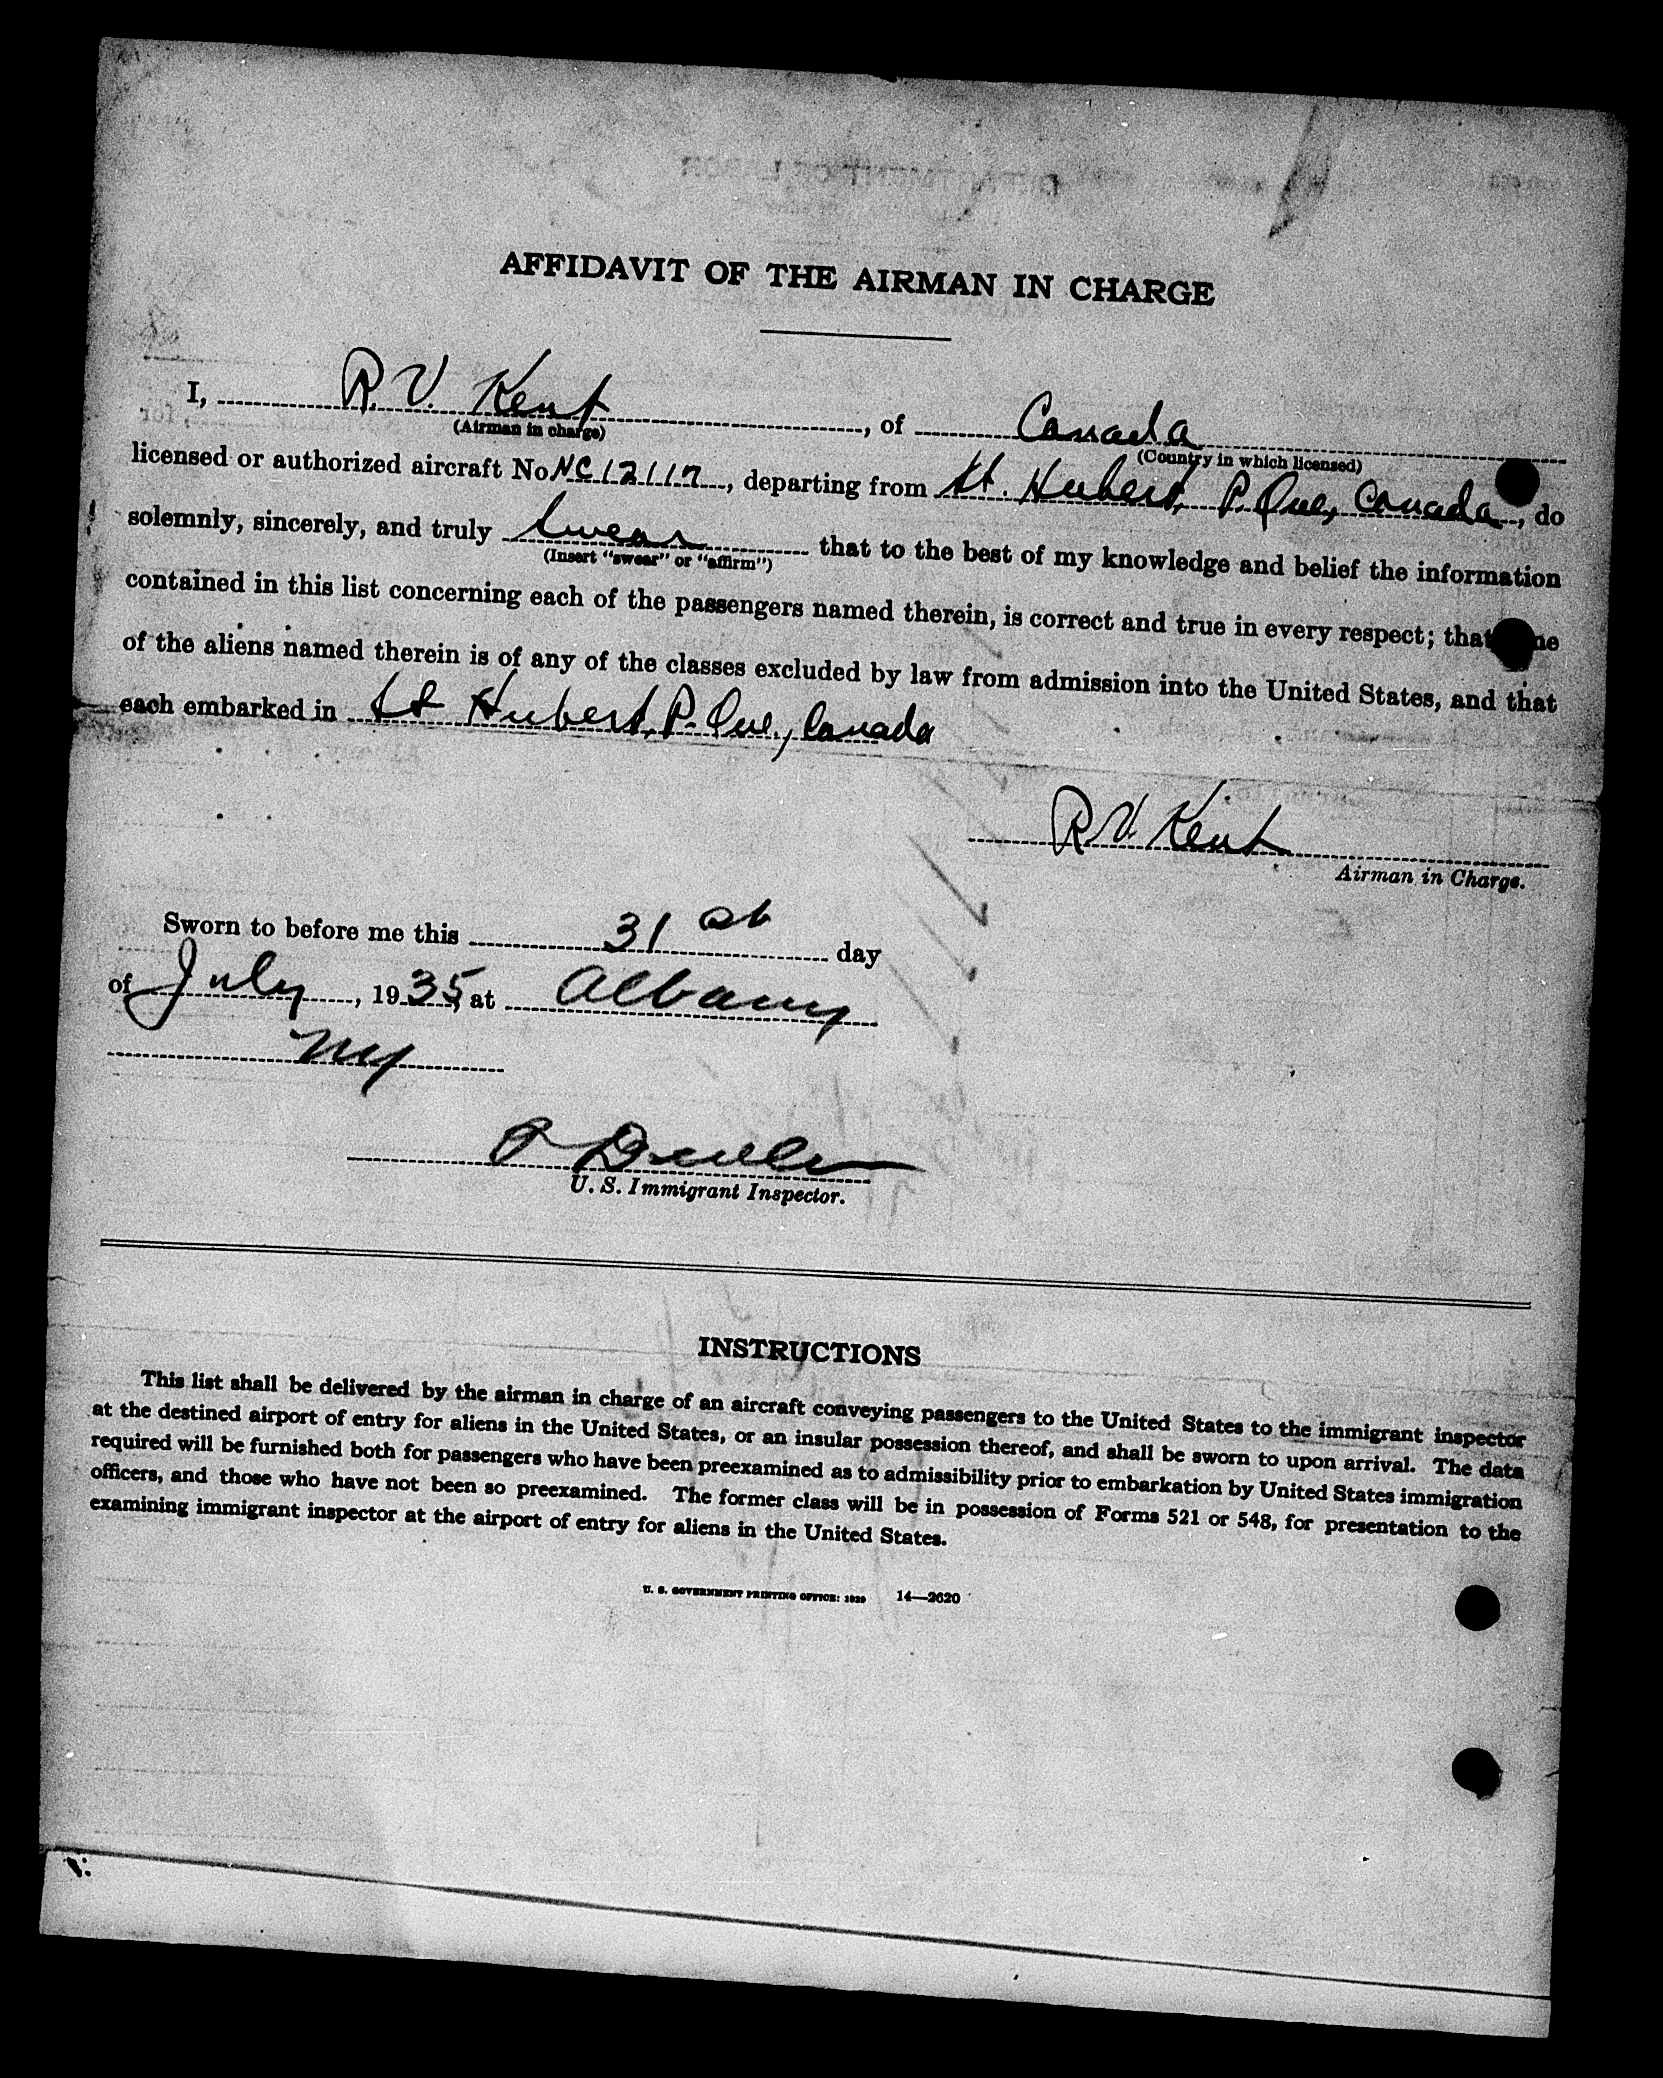 AFFIDAVIT OF THE AIRMAN IN CHARGE
I, R. V. Kent, of Canada
(Airman in charge) (Country in which licensed)
licensed or authorized aircraft No. NC12117, departing from St. Hubert, P. Que, Canada, do
solemnly, sincerely, and truly Swear that to the best of my knowledge and belief the information
(Insert "swear" or "affirm")
contained in this list concerning each of the passengers named therein, is correct and true in every respect; that
of the aliens named therein is of any of the classes excluded by law from admission into the United States, and that
each embarked in St Hubert, P. Que., Canada
R V. Kent
Airman in Charge.
Sworn to before me this 31 st day
of July, 1935, at Albany
NY
U. S. Immigrant Inspector.
INSTRUCTIONS
This list shall be delivered by the airman in charge of an aircraft conveying passengers to the United States to the immigrant inspector
at the destined airport of entry for aliens in the United States, or an insular possession thereof, and shall be sworn to upon arrival. The data
required will be furnished both for passengers who have been preexamined as to admissibility prior to embarkation by United States immigration
officers, and those who have not been so preexamined. The former class will be in possession of Forms 521 or 548, for presentation to the
examining immigrant inspector at the airport of entry for aliens in the United States.
U. S. GOVERNMENT PRINTING OFFICE: 1929 14—2620